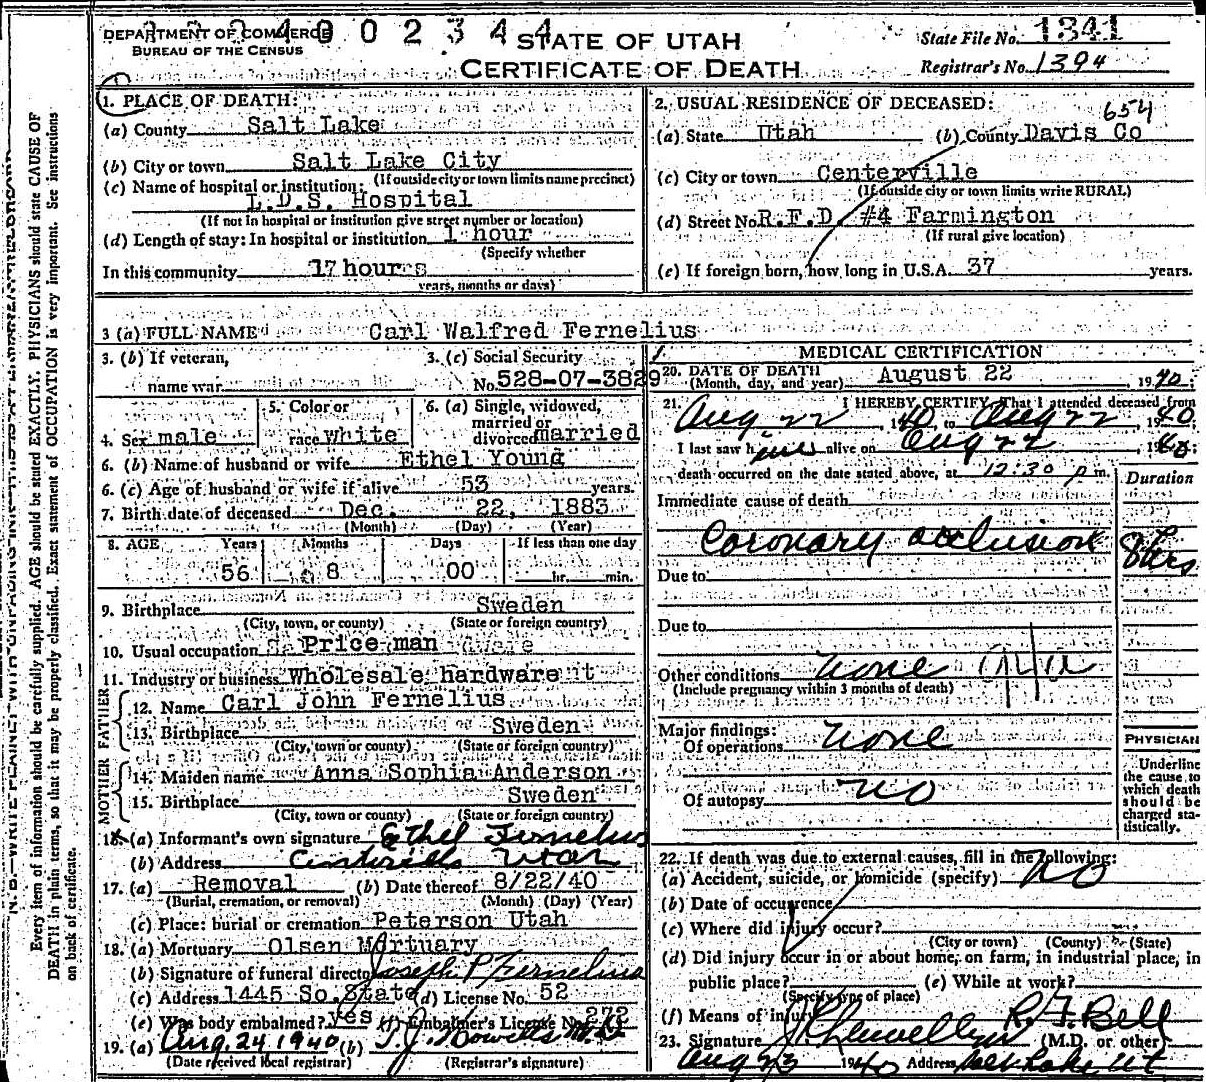 DEPARTMENT OF COMMERCE
BUREAU OF THE CENSUS
4 0 0 2 3 4 4
STATE OF UTAH
CERTIFICATE OF DEATH
State File No. 1341
Registrar's No. 1394
1. PLACE OF DEATH:
(a) County Salt Lake
(b) City or town Salt Lake City
(If outside city or town limits name precinct)
(c) Name of hospital or institution:
L.D.S. Hospital
(If not in hospital or institution give street number or location)
(d) Length of stay: In hospital or institution 1 hour
(Specify whether
In this community 17 hours
years, months or days)
2. USUAL RESIDENCE OF DECEASED:
654
(a) State Utah (b) County Davis Co
(c) City or town Centerville
(If outside city or town limits write RURAL)
(d) Street No. R.F.D. #4 Farmington
(If rural give location)
(e) If foreign born, how long in U.S.A. 37 years.
3 (a) FULL NAME Carl Walfred Fernelius
3. (b) If veteran,
name war
3. (c) Social Security
No. 528-07-3829
4. Sex male
5. Color or
race white
6. (a) Single, widowed,
married or
divorced married
6. (b) Name of husband or wife Ethel Young
6. (c) Age of husband or wife if alive 53 years.
7. Birth date of deceased Dec. 22, 1883
(Month) (Day) (Year)
8. AGE Years Months Days If less than one day
56 8 00 hr. min.
9. Birthplace Sweden
(City, town, or county) (State or foreign country)
10. Usual occupation Price man
11. Industry or business Wholesale hardware
FATHER
12. Name Carl John Fernelius
13. Birthplace Sweden
(City, town or county) (State or foreign country)
MOTHER
14. Maiden name Anna Sophia Anderson
15. Birthplace Sweden
(City, town or county) (State or foreign country)
16. (a) Informant's own signature Ethel Fernelius
(b) Address Centerville Utah
17. (a) Removal (b) Date thereof 8/22/40
(Burial, cremation, or removal) (Month) (Day) (Year)
(c) Place: burial or cremation Peterson Utah
18. (a) Mortuary Olsen Mortuary
(b) Signature of funeral director Joseph P Fernelius
(c) Address 1445 So. State (d) License No. 52
(e) Was body embalmed? yes (f) Embalmer's License No. 272
19. (a) Aug. 24 1940 (b) T. J. Howells M.D
(Date received local registrar) (Registrar's signature)
MEDICAL CERTIFICATION
20. DATE OF DEATH
(Month, day, and year) August 22, 1940.
21. I HEREBY CERTIFY, That I attended deceased from
Aug 22, 1940, to Aug 22, 1940,
I last saw him alive on Aug 22, 1940;
death occurred on the date stated above, at 12:30 p m.
Duration
Immediate cause of death
Coronary occlusion 8 hrs
Due to
Due to
Other conditions None
(Include pregnancy within 3 months of death)
Major findings:
Of operations None
Of autopsy no
PHYSICIAN
Underline
the cause to
which death
should be
charged sta-
tistically.
22. If death was due to external causes, fill in the following:
(a) Accident, suicide, or homicide (specify) no
(b) Date of occurrence
(c) Where did injury occur?
(City or town) (County) (State)
(d) Did injury occur in or about home, on farm, in industrial place, in
public place? (e) While at work?
(Specify type of place)
(f) Means of injury
R. T. Bell
23. Signature Llewellyn (M.D. or other)
Aug 23 1940 Address Salt Lake Ut
Every item of information should be carefully supplied. AGE should be stated EXACTLY. PHYSICIANS should state CAUSE OF
DEATH in plain terms, so that it may be properly classified. Exact statement of OCCUPATION is very important. See instructions
on back of certificate.